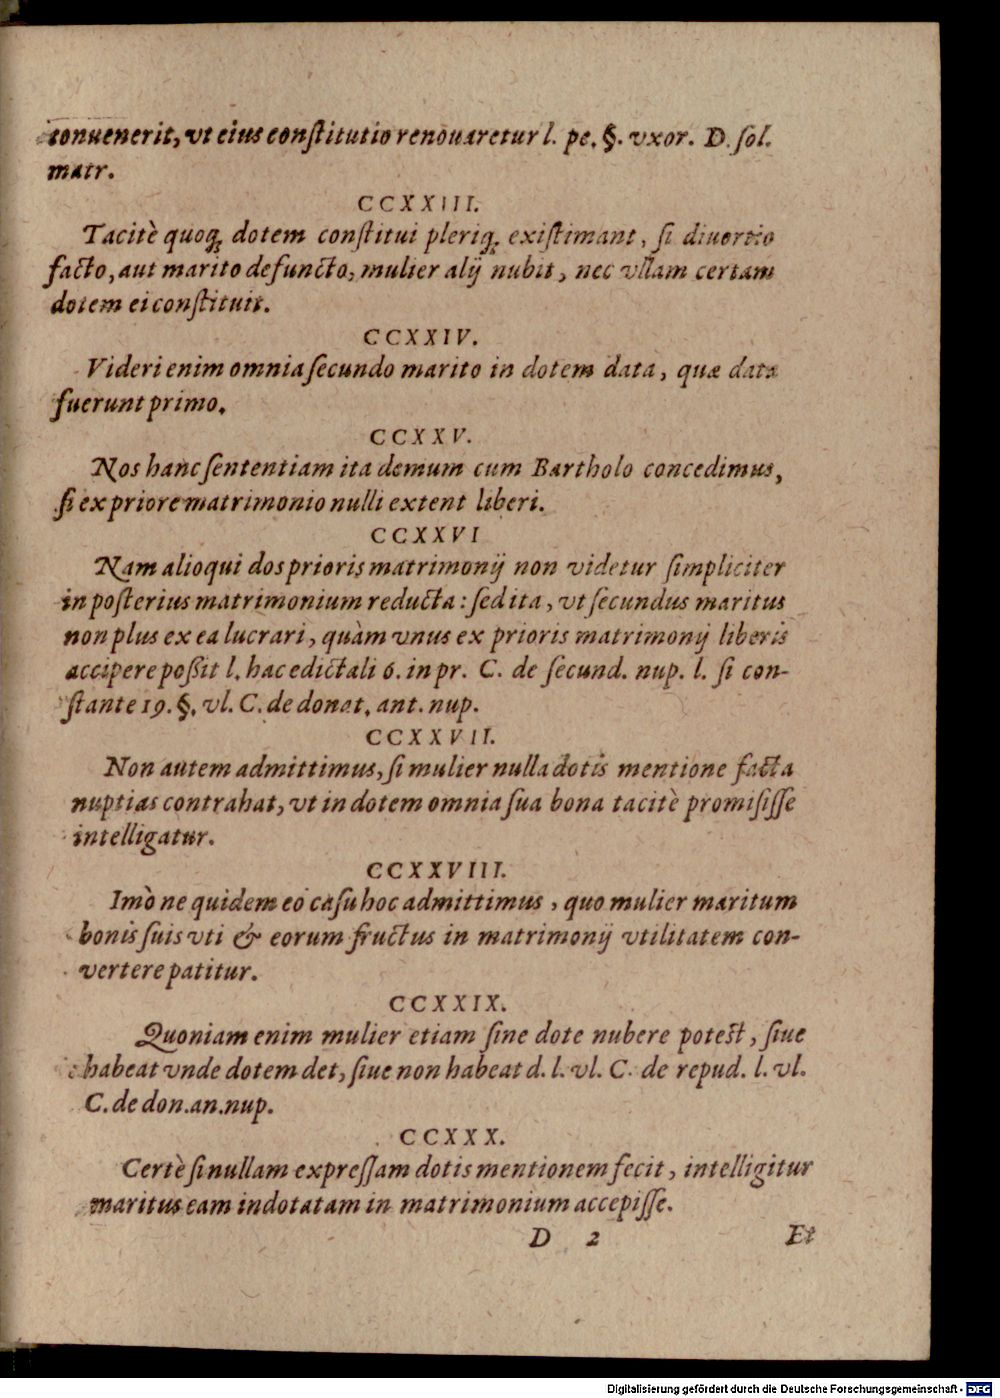 conuenerit, vt eius constitutio renouaretur l. pe. §. vxor. D. sol.
matr.
CCXXIII.
Tacitè quoq; dotem constitui pleriq; existimant, si diuortio
facto, aut marito defuncto, mulier alij nubit, nec vllam certam
dotem ei constituit.
CCXXIV.
Videri enim omnia secundo marito in dotem data, quæ data
fuerunt primo.
CCXXV.
Nos hanc sententiam ita demum cum Bartholo concedimus,
si ex priore matrimonio nulli extent liberi.
CCXXVI
Nam alioqui dos prioris matrimonij non videtur simpliciter
in posterius matrimonium reducta: sed ita, vt secundus maritus
non plus ex ea lucrari, quàm vnus ex prioris matrimonij liberis
accipere poßit l. hac edictali 6. in pr. C. de secund. nup. l. si con-
stante 19. §. vl. C. de donat. ant. nup.
CCXXVII.
Non autem admittimus, si mulier nulla dotis mentione facta
nuptias contrahat, vt in dotem omnia sua bona tacitè promisisse
intelligatur.
CCXXVIII.
Imò ne quidem eo casu hoc admittimus, quo mulier maritum
bonis suis vti & eorum fructus in matrimonij vtilitatem con-
vertere patitur.
CCXXIX.
Quoniam enim mulier etiam sine dote nubere potest, siue
habeat vnde dotem det, siue non habeat d. l. vl. C. de repud. l. vl.
C. de don. an. nup.
CCXXX.
Certè si nullam expressam dotis mentionem fecit, intelligitur
maritus eam indotatam in matrimonium accepisse.
D 2 Et
Digitalisierung gefördert durch die Deutsche Forschungsgemeinschaft - DFG